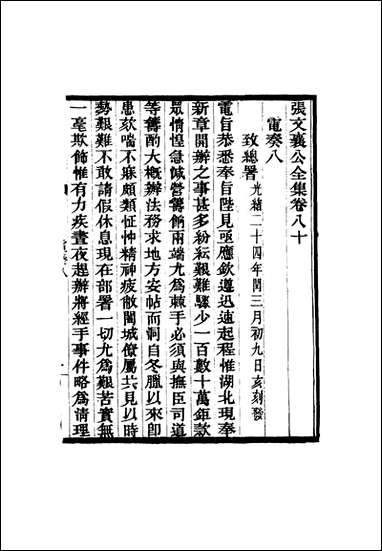 張文襄公全集卷八十
電奏八
致總署 光緒二十四年閏三月初九日亥刻發
電旨恭悉奉旨陛見亟應欽遵迅速起程惟湖北現奉
新章開辦之事甚多紛紜艱難驟少一百數十萬鉅款
眾情惶急餉營籌餉兩端尤為棘手必須與撫臣司道
等籌酌大概辦法務求地方安帖而洞自冬臘以來即
患欬喘不寐頗類怔忡精神疲敝闔城僚屬共見以時
勢艱難不敢請假休息現在部署一切尤為艱苦實無
一毫欺飾惟有力疾晝夜趕辦將經手事件略為清理